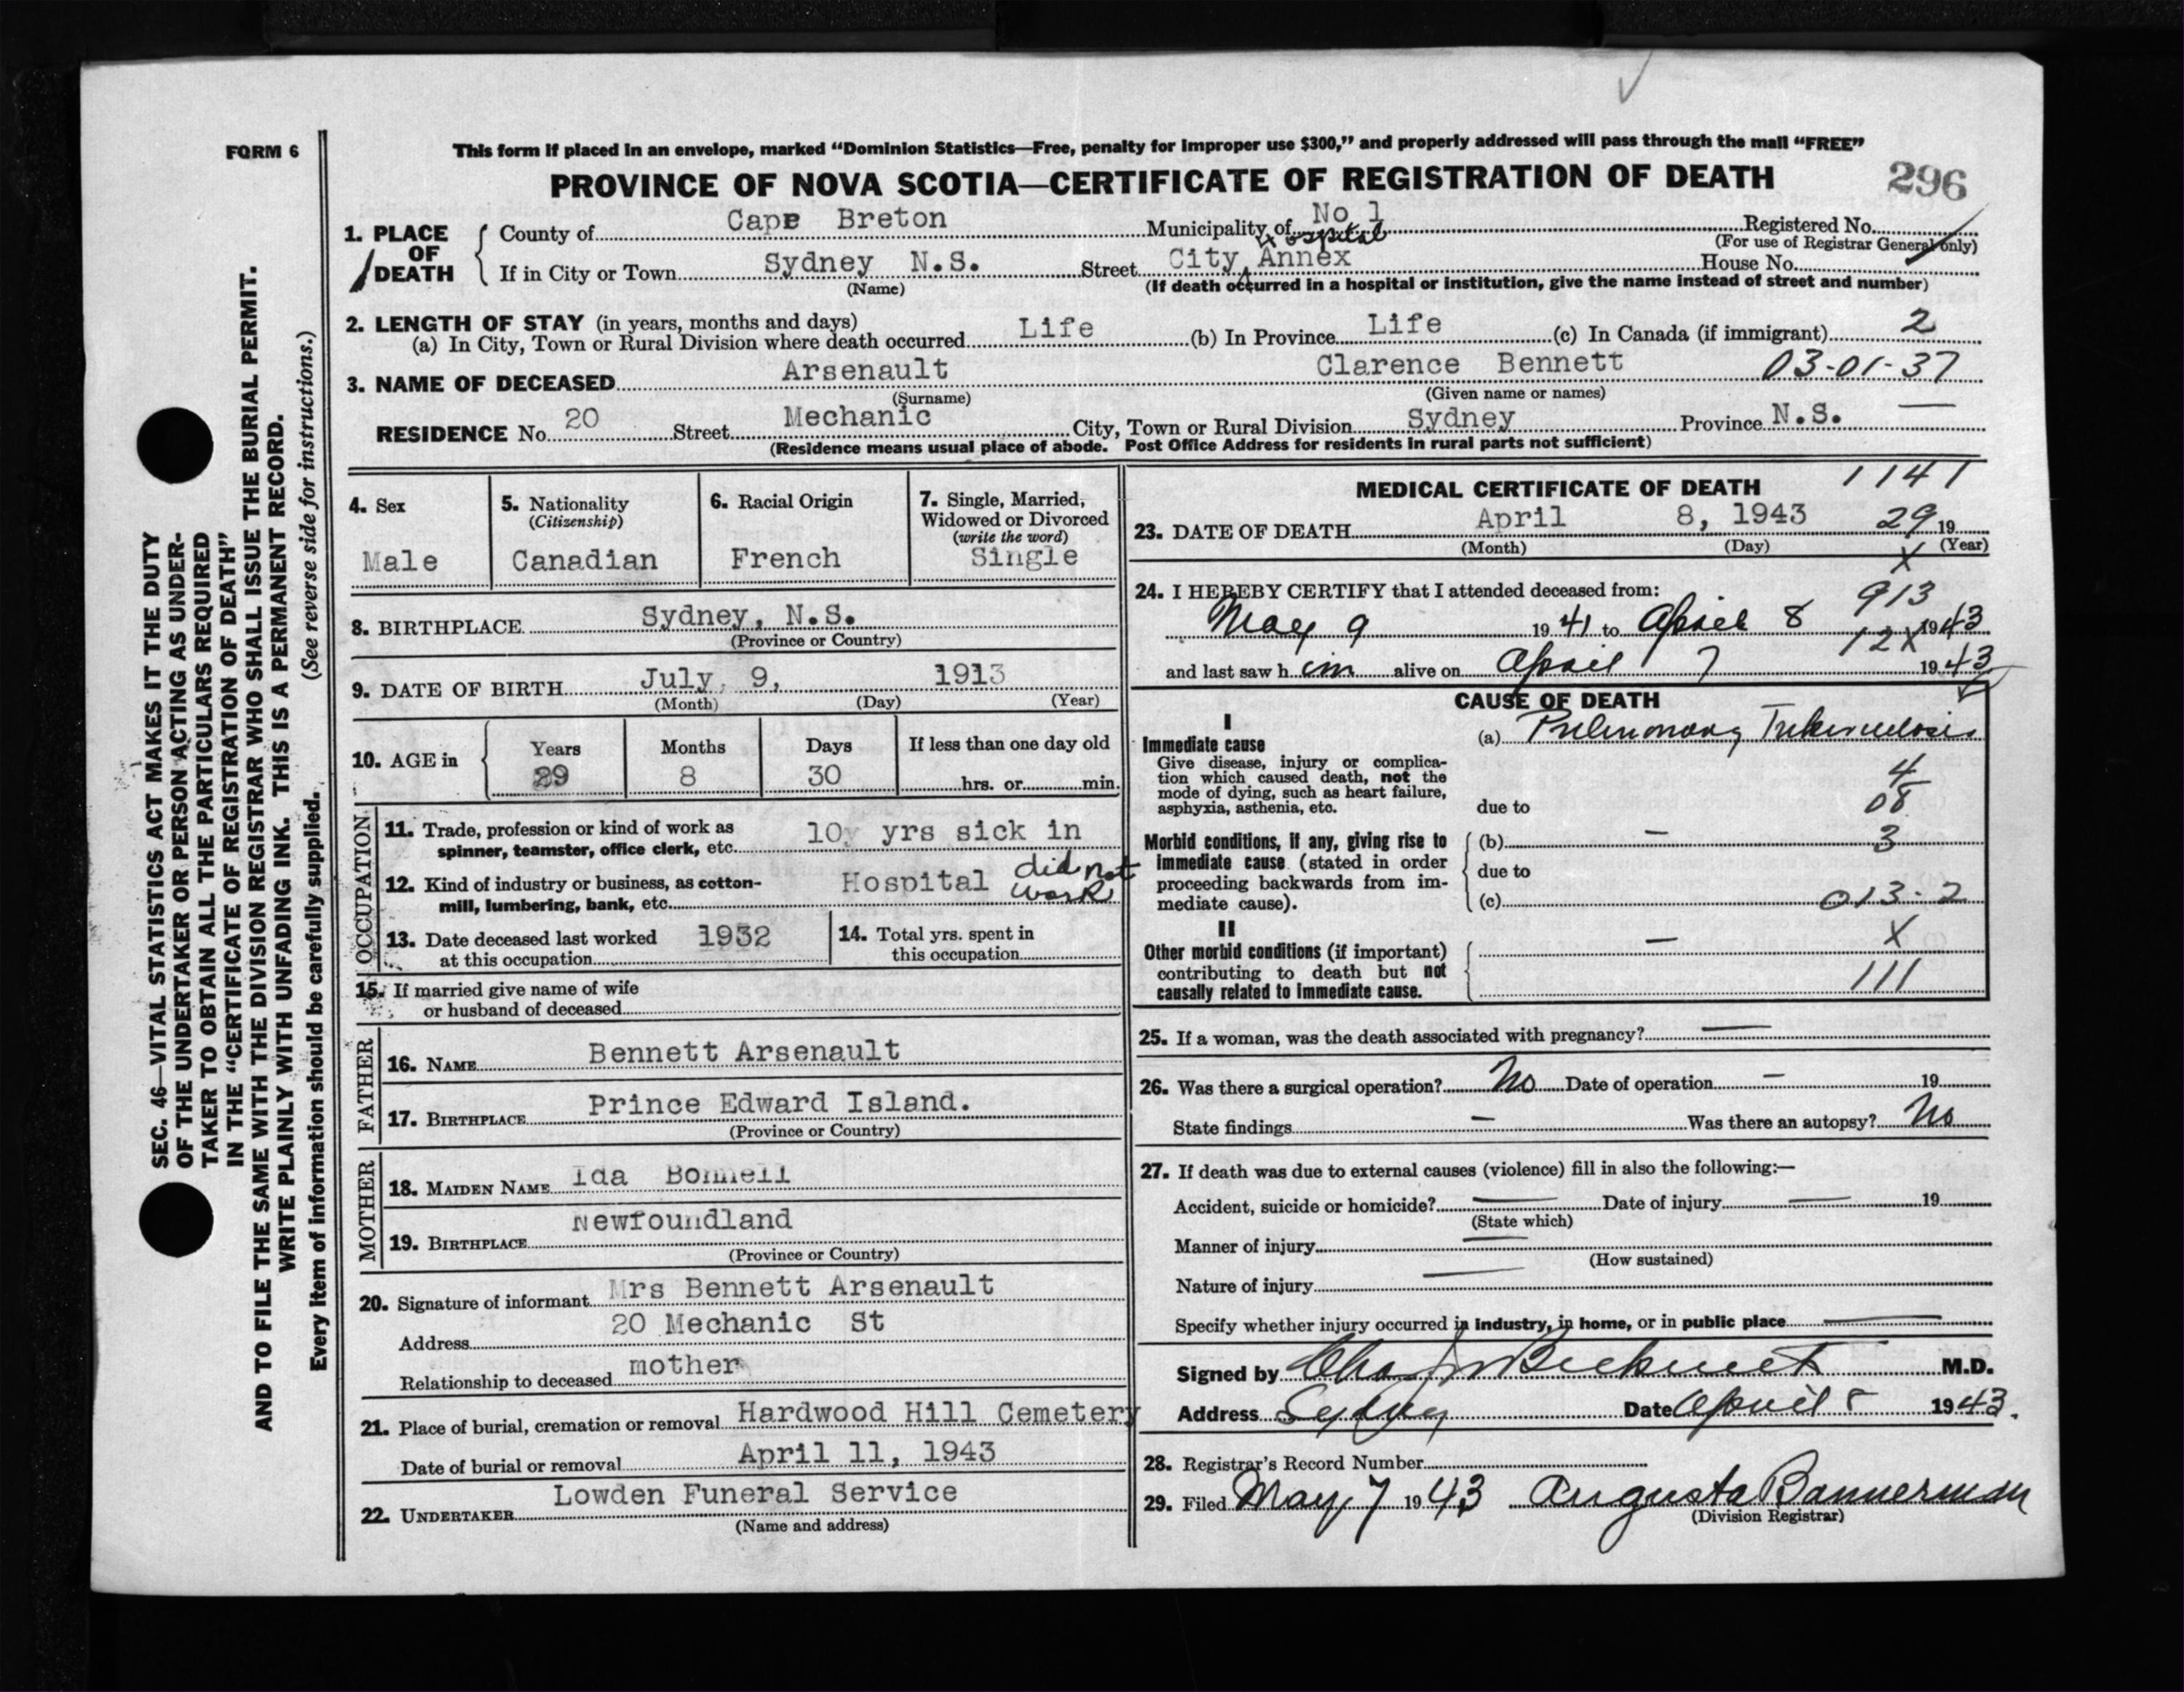 FORM 6
This form if placed in an envelope, marked “Dominion Statistics—Free, penalty for improper use $300,” and properly addressed will pass through the mail “FREE”
PROVINCE OF NOVA SCOTIA—CERTIFICATE OF REGISTRATION OF DEATH
296
1. PLACE OF DEATH
County of Cape Breton Municipality of No 1 Registered No.
(For use of Registrar General only)
If in City or Town Sydney N.S. Street City Hospital Annex House No.
(Name) (If death occurred in a hospital or institution, give the name instead of street and number)
2. LENGTH OF STAY (in years, months and days)
(a) In City, Town or Rural Division where death occurred Life (b) In Province Life (c) In Canada (if immigrant) 2
3. NAME OF DECEASED Arsenault Clarence Bennett 03-01-37
(Surname) (Given name or names)
RESIDENCE No. 20 Street Mechanic City, Town or Rural Division Sydney Province N.S. —
(Residence means usual place of abode. Post Office Address for residents in rural parts not sufficient)
4. Sex
Male
5. Nationality
(Citizenship)
Canadian
6. Racial Origin
French
7. Single, Married,
Widowed or Divorced
(write the word)
Single
8. BIRTHPLACE Sydney, N.S.
(Province or Country)
9. DATE OF BIRTH July 9, 1913
(Month) (Day) (Year)
10. AGE in
Years Months Days If less than one day old
29 8 30 hrs. or min.
OCCUPATION
11. Trade, profession or kind of work as
spinner, teamster, office clerk, etc. 10 yrs sick in
12. Kind of industry or business, as cotton-
mill, lumbering, bank, etc. Hospital did not work
13. Date deceased last worked
at this occupation 1932
14. Total yrs. spent in
this occupation
15. If married give name of wife
or husband of deceased
FATHER
16. NAME Bennett Arsenault
17. BIRTHPLACE Prince Edward Island.
(Province or Country)
MOTHER
18. MAIDEN NAME Ida Bonnell
19. BIRTHPLACE Newfoundland
(Province or Country)
20. Signature of informant Mrs Bennett Arsenault
Address 20 Mechanic St
Relationship to deceased mother
21. Place of burial, cremation or removal Hardwood Hill Cemetery
Date of burial or removal April 11, 1943
22. UNDERTAKER Lowden Funeral Service
(Name and address)
MEDICAL CERTIFICATE OF DEATH 1141
23. DATE OF DEATH April 8, 1943 29 19
(Month) (Day) (Year)
X
24. I HEREBY CERTIFY that I attended deceased from: 913
May 9 19 41 to April 8 1943
12X
and last saw h im alive on April 7 19 43
CAUSE OF DEATH
I
Immediate cause
Give disease, injury or complica-
tion which caused death, not the
mode of dying, such as heart failure,
asphyxia, asthenia, etc.
(a) Pulmonary Tuberculosis
4
08
due to
Morbid conditions, if any, giving rise to
immediate cause (stated in order
proceeding backwards from im-
mediate cause).
(b) — 3
due to
(c) 013-2
II
Other morbid conditions (if important)
contributing to death but not
causally related to immediate cause.
— X
111
25. If a woman, was the death associated with pregnancy? —
26. Was there a surgical operation? No Date of operation — 19
State findings — Was there an autopsy? No
27. If death was due to external causes (violence) fill in also the following:—
Accident, suicide or homicide? — Date of injury — 19
(State which)
Manner of injury —
(How sustained)
Nature of injury —
Specify whether injury occurred in industry, in home, or in public place —
Signed by M.D.
Address Sydney Date April 8 1943.
28. Registrar's Record Number
29. Filed May 7 19 43 Augusta Bannerman
(Division Registrar)
SEC. 46—VITAL STATISTICS ACT MAKES IT THE DUTY
OF THE UNDERTAKER OR PERSON ACTING AS UNDER-
TAKER TO OBTAIN ALL THE PARTICULARS REQUIRED
IN THE “CERTIFICATE OF REGISTRATION OF DEATH”
AND TO FILE THE SAME WITH THE DIVISION REGISTRAR WHO SHALL ISSUE THE BURIAL PERMIT.
WRITE PLAINLY WITH UNFADING INK. THIS IS A PERMANENT RECORD.
(See reverse side for instructions.)
Every item of information should be carefully supplied.